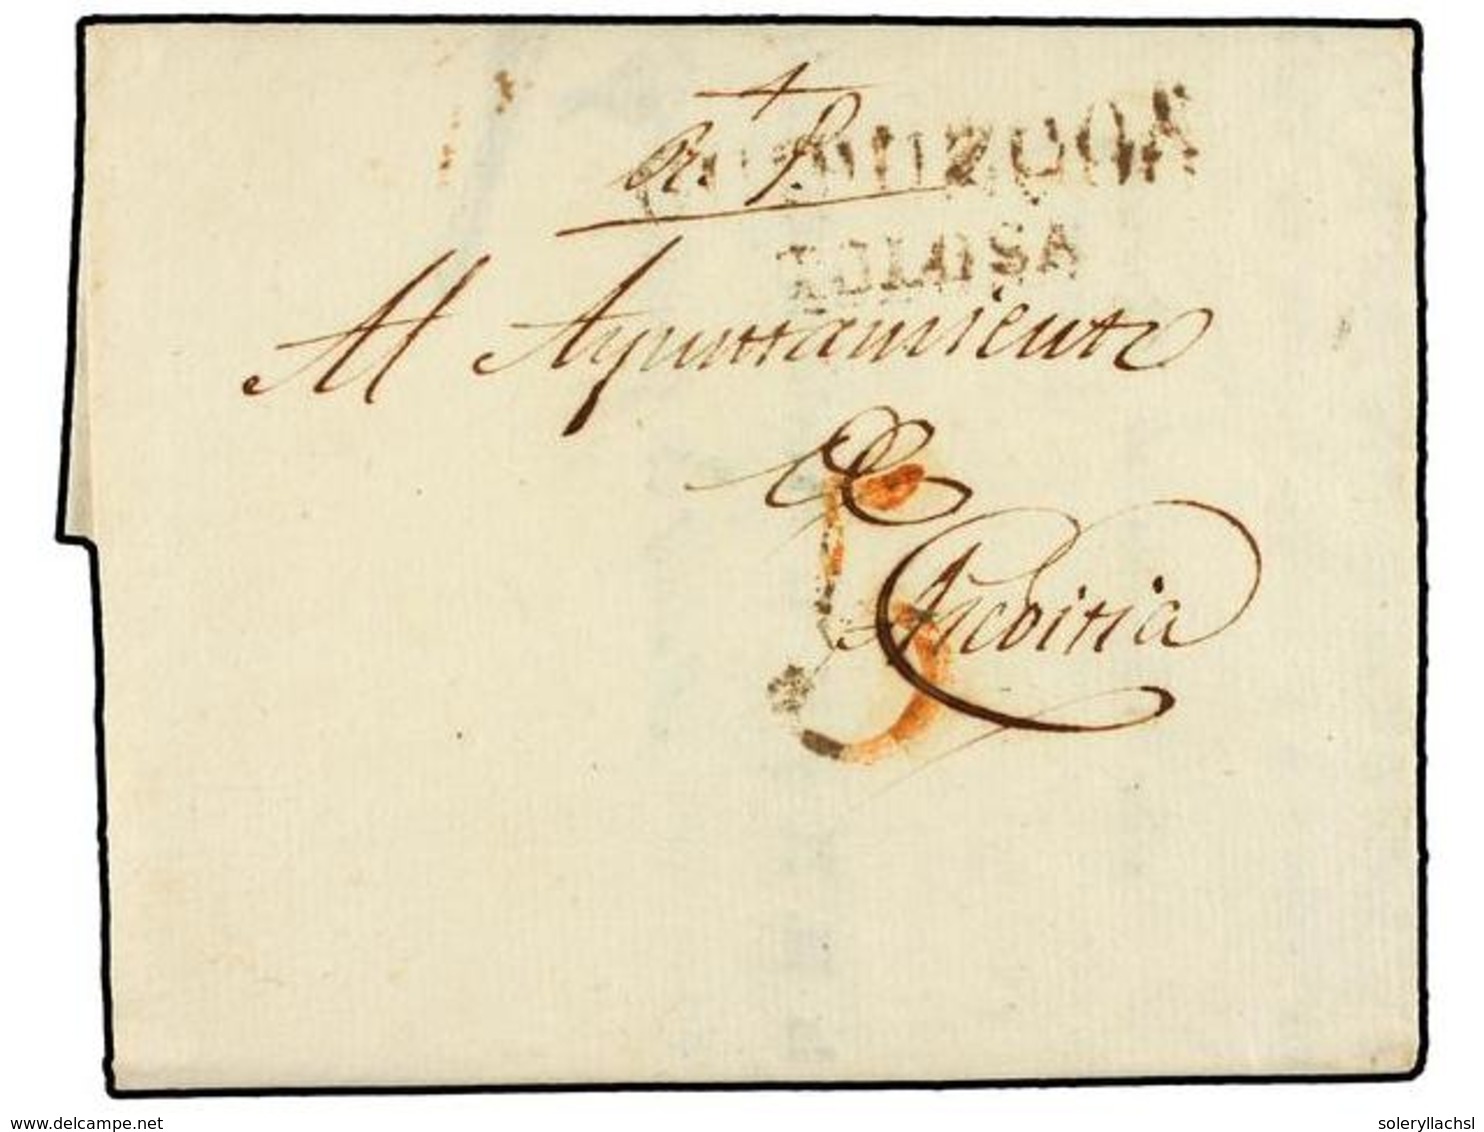 GUIPUZCOA
TOLOSA
Al Ayunttamiento
de
Ascoitia
5
www.delcampe.net
soleryllachsl